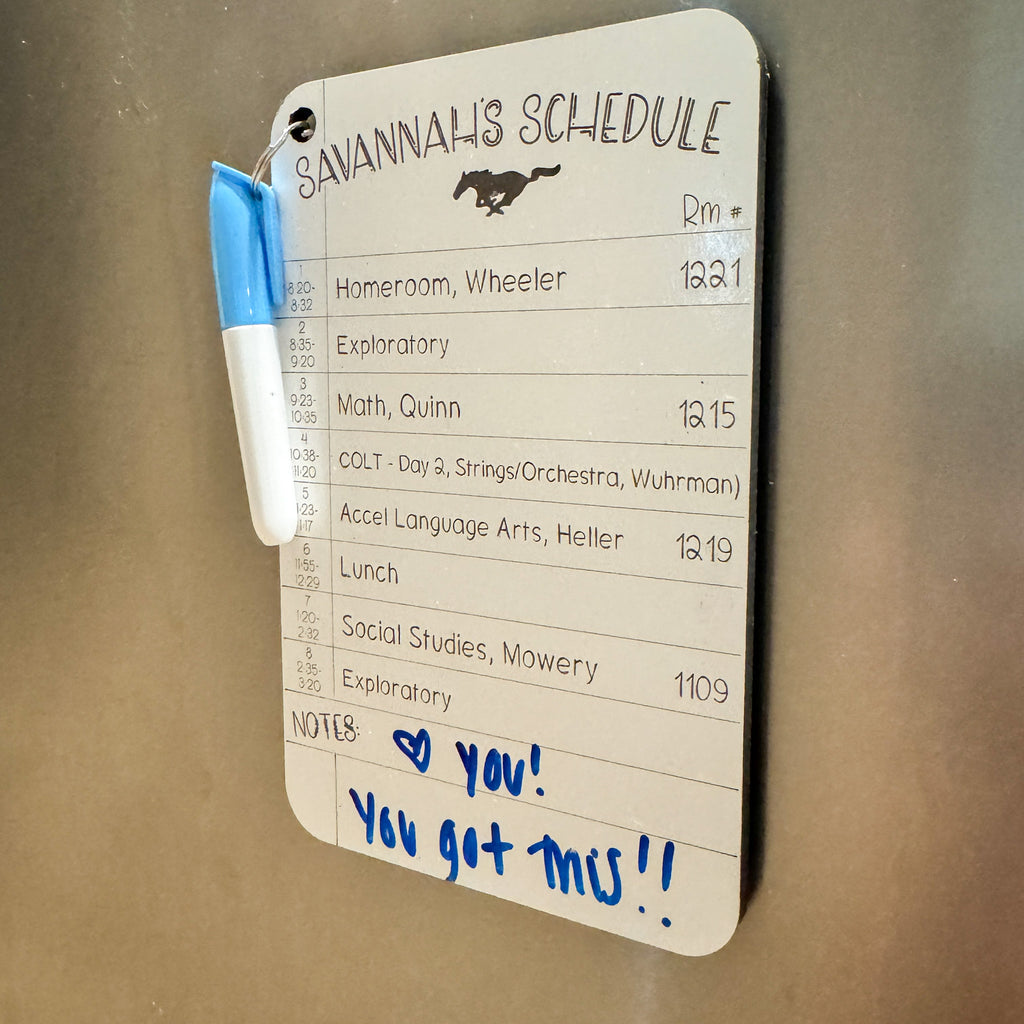 SAVANNAH'S SCHEDULE
Rm #
1
8:20-
8:32
Homeroom, Wheeler 1221
2
8:35-
9:20
Exploratory
3
9:23-
10:35
Math, Quinn 1215
4
10:38-
11:20
COLT - Day 2, Strings/Orchestra, Wuhrman)
5
Accel Language Arts, Heller 1219
6
11:55-
12:29
Lunch
7
1:20-
2:32
Social Studies, Mowery 1109
8
2:35-
3:20
Exploratory
NOTES: ♡ YOU!
YOU got this!!